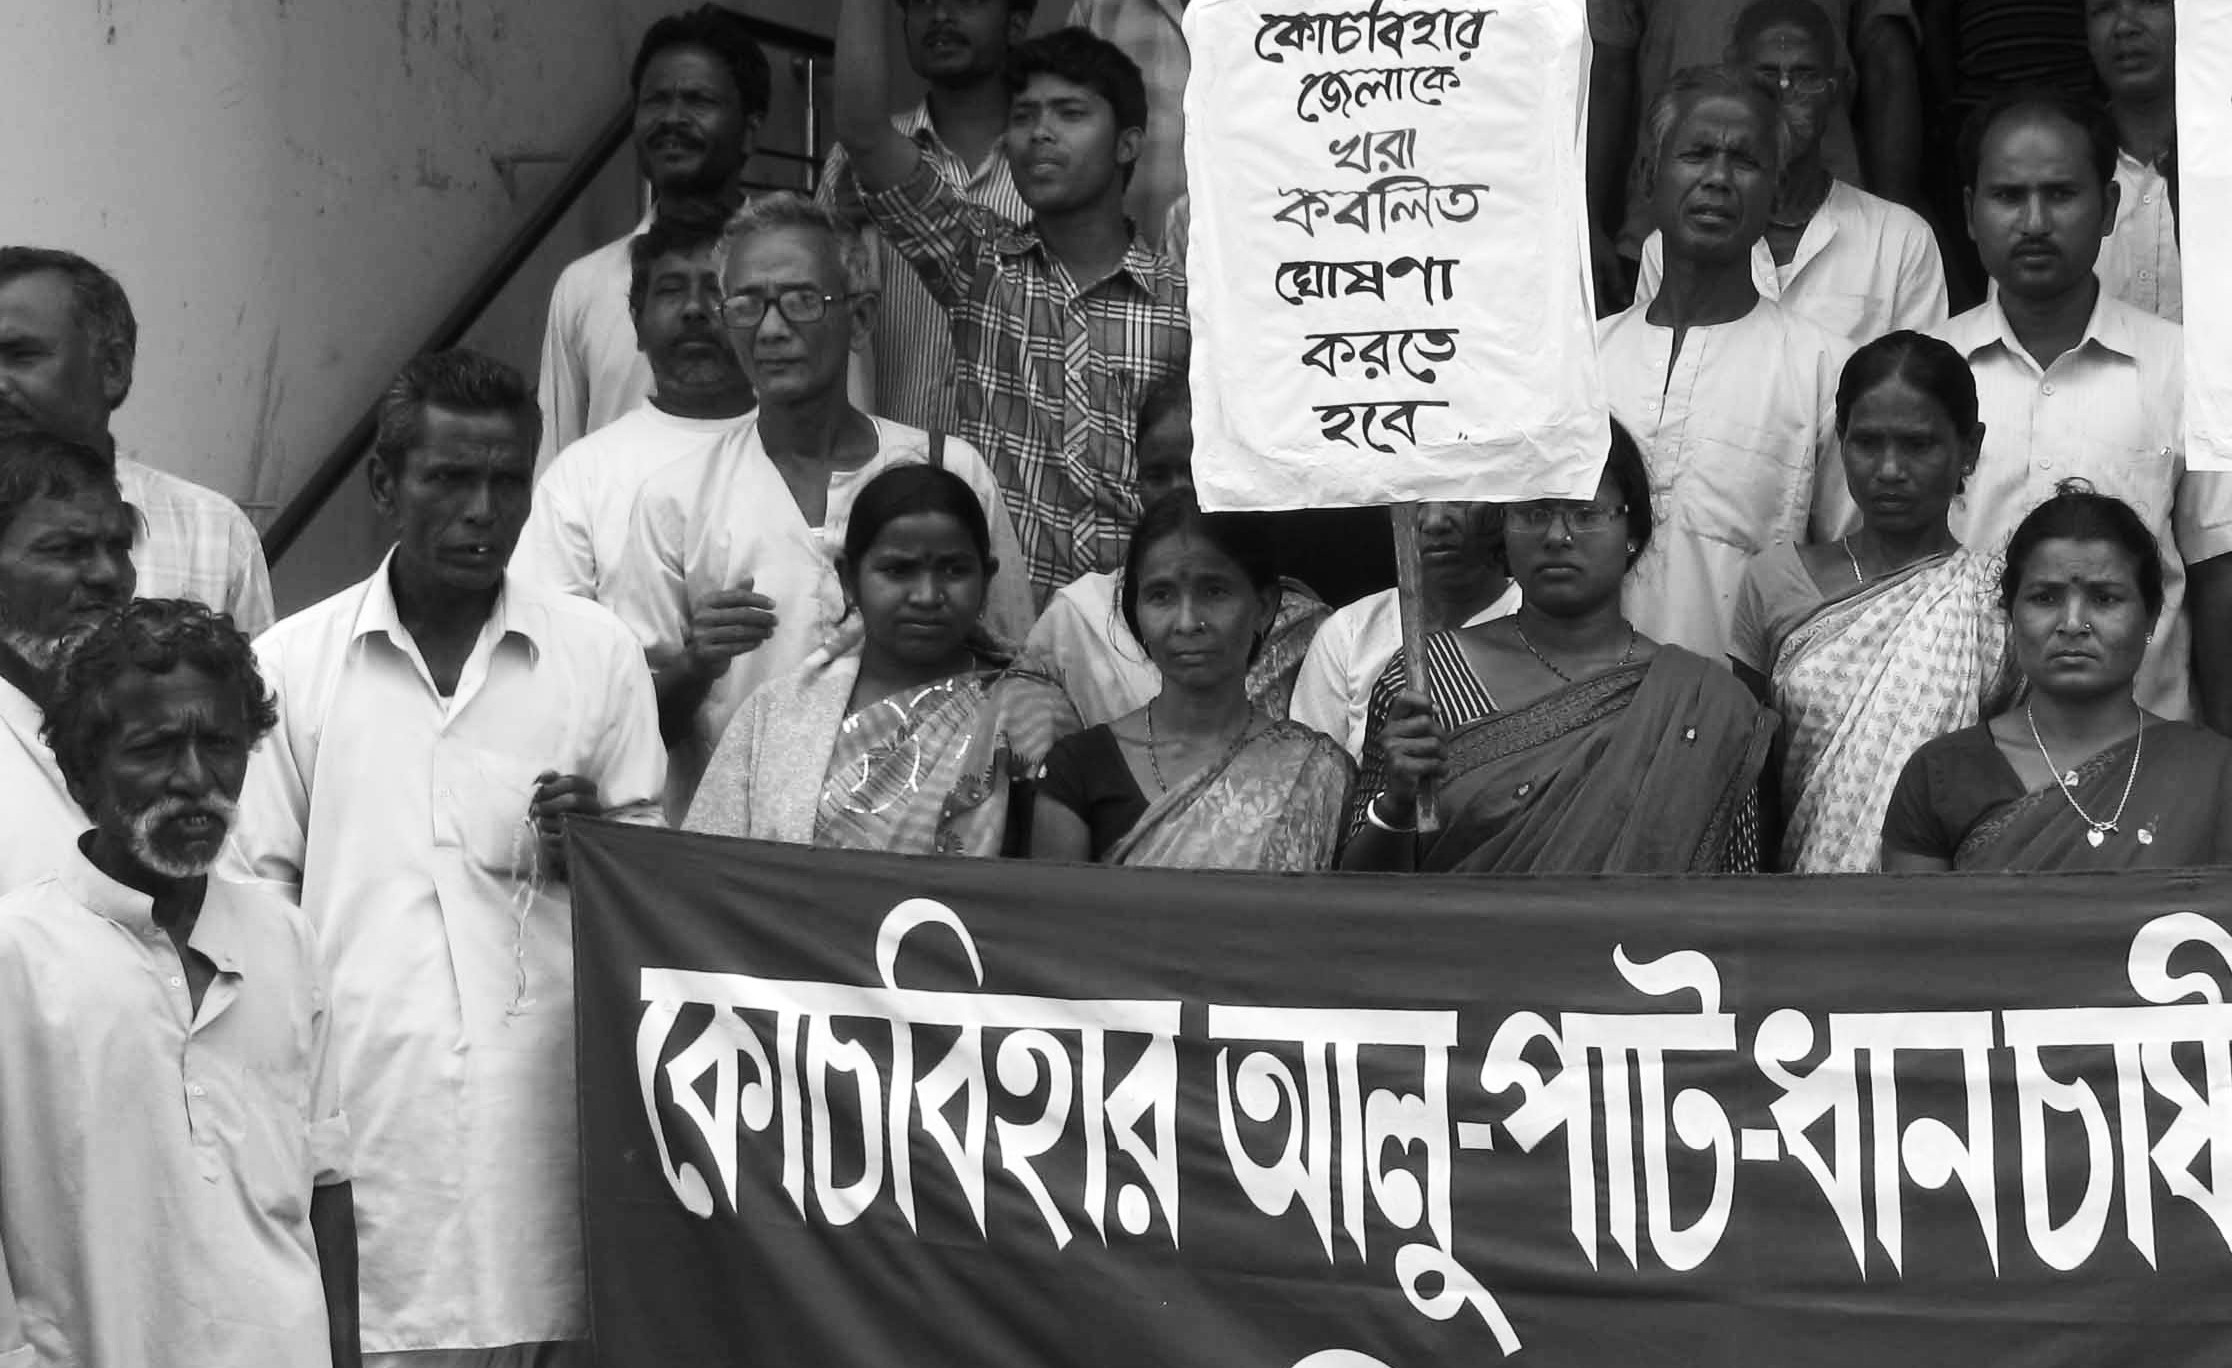 কোচবিহার
জেলাকে
খরা
কবলিত
ঘোষণা
করতে
হবে
কোচবিহার আলু-পাট-ধান চাষী